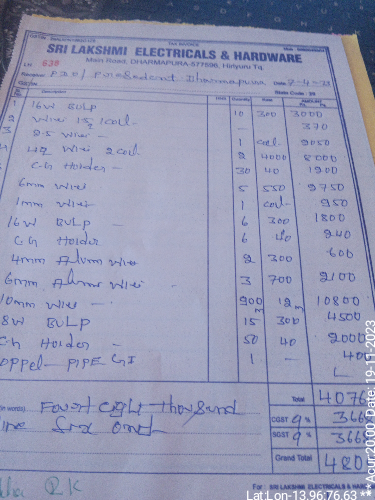 TAX INVOICE
SRI LAKSHMI ELECTRICALS & HARDWARE
Main Road, DHARMAPURA-577596, Hiriyuru Tq.
No. 638
Date
State Code : 29
Quantity Rate AMOUNT
1 16W BULP 10 300 3000
2 Wire 1 coil - 370
3 2.5 wire - 1 coil 2050
4 wire 2 coil 2 4000 8000
5 C-H Holder - 30 40 1200
6mm wire 5 550 2750
1mm wire 1 coil 950
16W BULP - 6 300 1800
C-H Holder 6 40 240
4mm Alum wire 2 300 600
6mm Alum wire 3 700 2100
10mm wire - 900m 12m 10800
8W BULP 15 300 4500
C-H Holder - 50 40 2000
PIPE GI 1 - 400
Total 4076
(in words) Fourt eight thousand
CGST 9 % 366
Six only
SGST 9 % 366
Grand Total 480
For : SRI LAKSHMI ELECTRICALS &
Lat:Lon-13.96:76.63 **
Acur:20.00 - Date: 19-11-2023